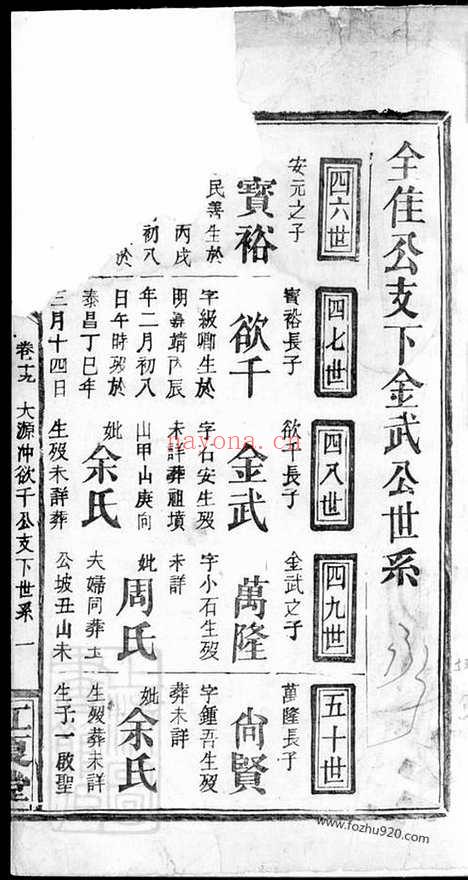 全佳公支下金武公世系
四六世
安元之子
寶裕
民善生於
丙戌
初八
於
四七世
寶裕長子
欲千
字級卿生於
明嘉靖丙辰
年二月初八
日午時殁於
泰昌丁巳年
三月十四日
四八世
欲千長子
金武
字石安生殁
未詳葬祖墳
山甲山庚向
妣余氏
生殁未詳葬
四九世
金武之子
萬隆
字小石生殁
未詳
妣周氏
夫婦同葬玉
公坡丑山未
五十世
萬隆長子
尙賢
字鍾吾生殁
葬未詳
妣余氏
生殁葬未詳
生子一啟聖
卷十九 大源沖欲千公支下世系 一
江夏堂
nayona.cn
www.fozhu920.com